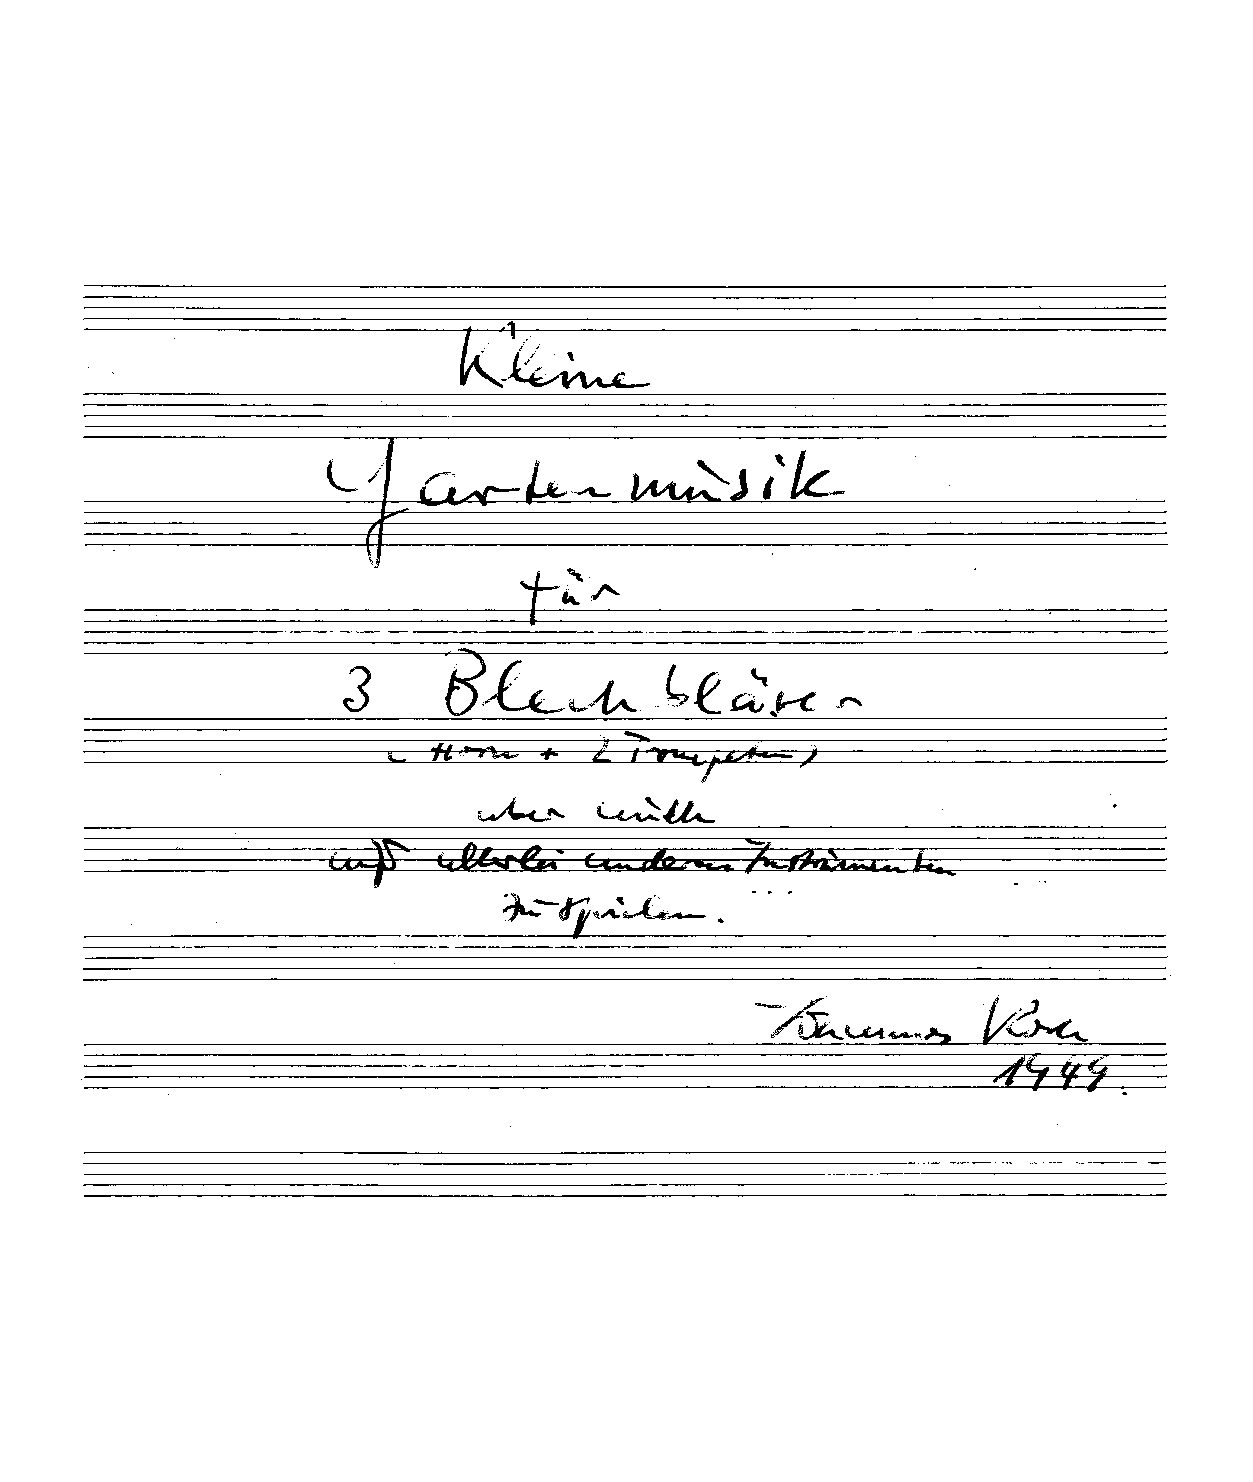 Kleine
Gartenmusik
für
3 Blechbläser
(Horn + 2 Trompeten)
aber auch
auf allerlei anderen Instrumenten
zu spielen.
Johannes Koch
1949.